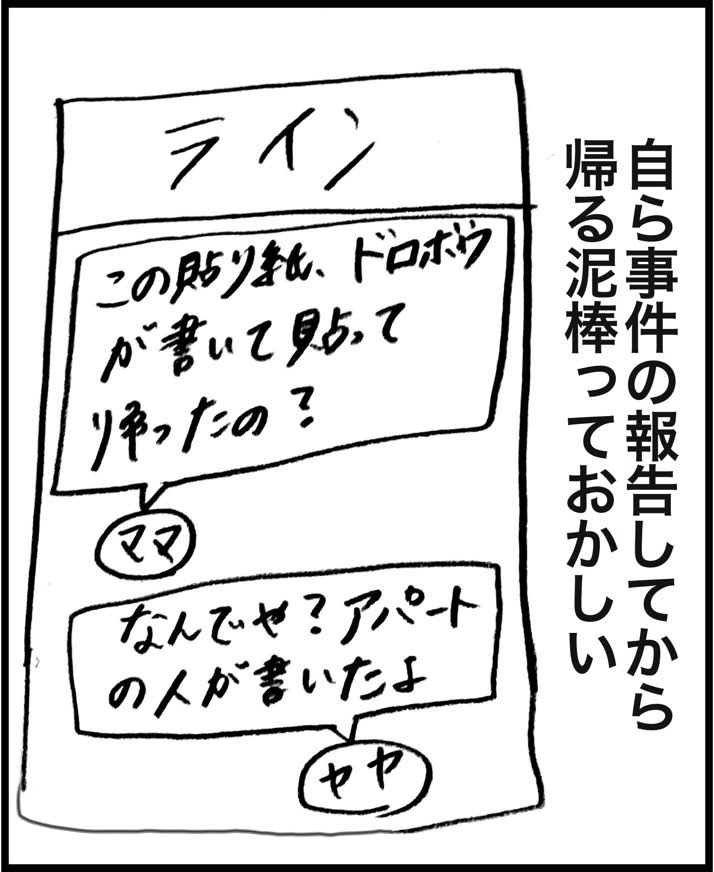 自ら事件の報告してから
帰る泥棒っておかしい
ライン
この貼り紙、ドロボウ
が書いて貼って
帰ったの？
ママ
なんでや？アパート
の人が書いたよ
ヤヤ